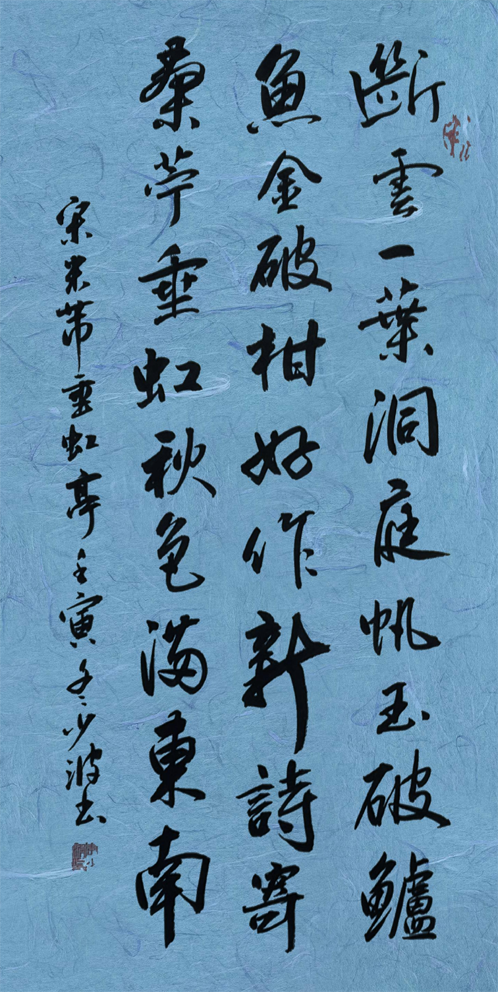 斷雲一葉洞庭帆玉破鱸
魚金破柑好作新詩寄
桑苧垂虹秋色滿東南
宋米芾垂虹亭壬寅冬少波书